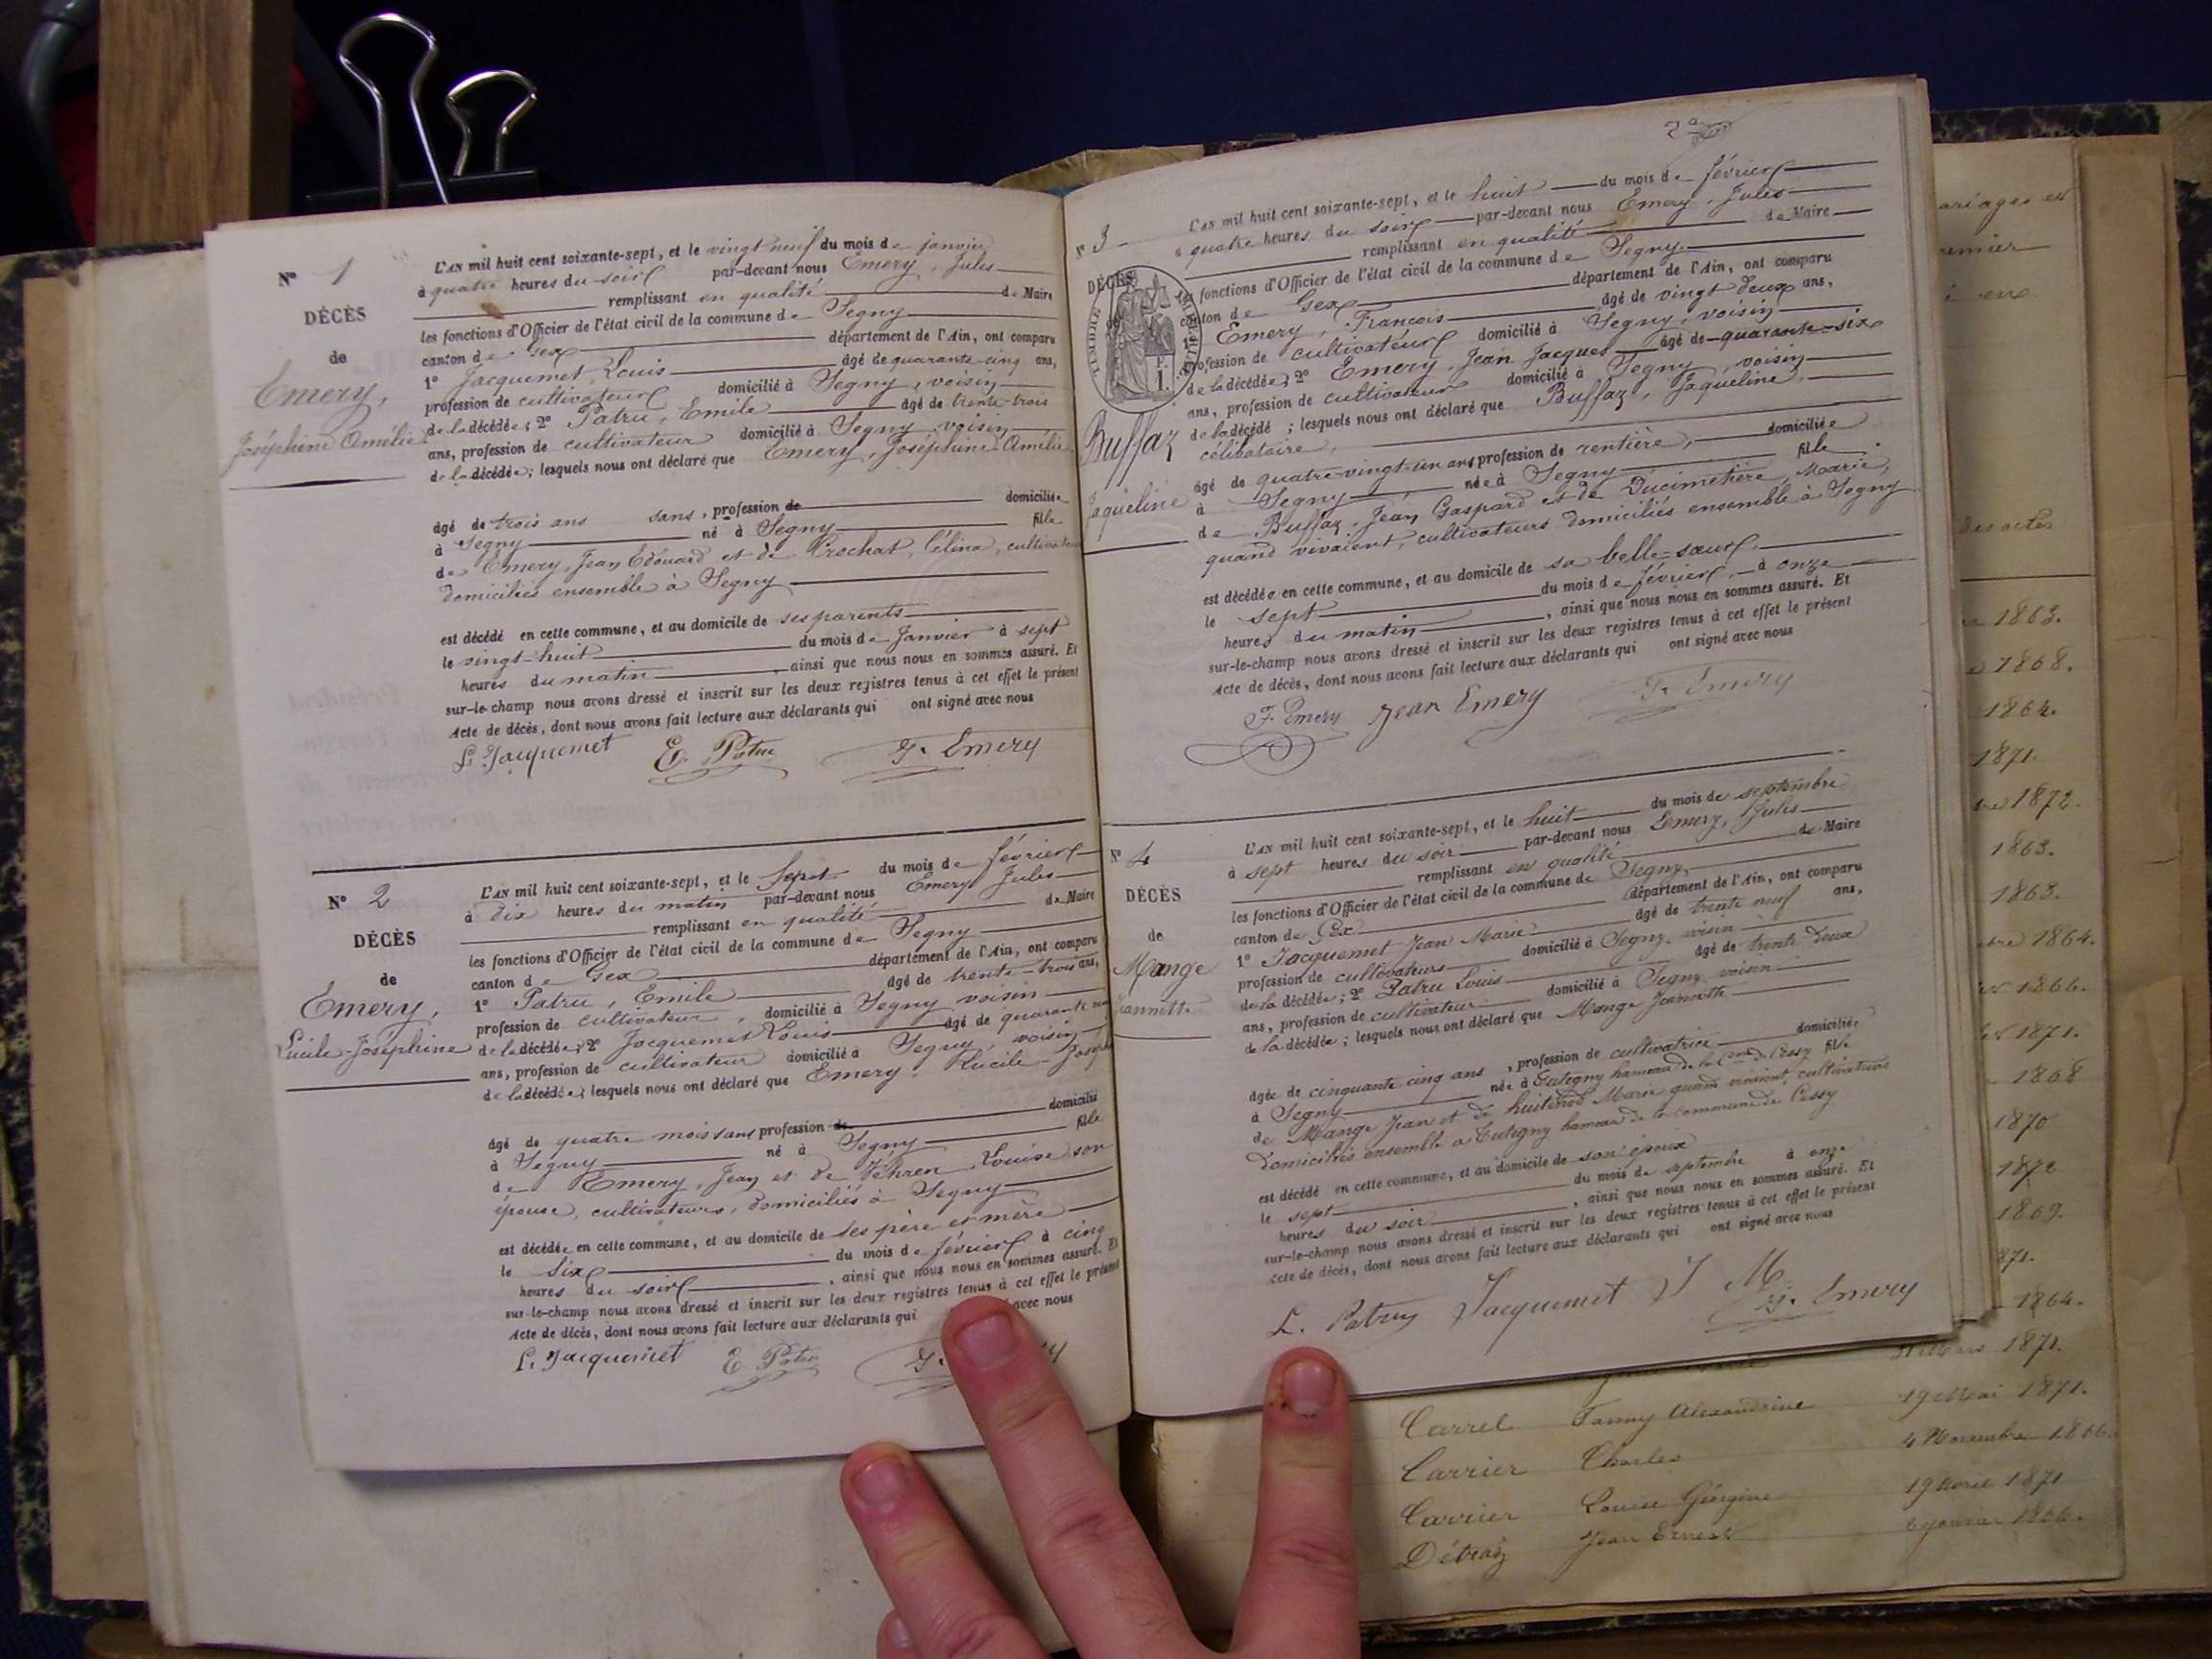 N° 1
DÉCÈS
de
Emery,
Joséphine Amélie
L'AN mil huit cent soixante-sept, et le vingt neuf du mois de janvier
à quatre heures du soir par-devant nous Emery, Jules
remplissant en qualité de Maire
les fonctions d'Officier de l'état civil de la commune de Segny
canton de Gex département de l'Ain, ont comparu
1° Jacquemet, Louis âgé de quarante-cinq ans,
profession de cultivateur domicilié à Segny, voisin
de la décédée; 2° Patru, Emile âgé de trente-trois
ans, profession de cultivateur domicilié à Segny, voisin
de la décédée; lesquels nous ont déclaré que Emery, Joséphine Amélie
âgé de trois ans sans, profession de domiciliée
à Segny né à Segny fille
de Emery, Jean Edouard et de Crochat, Célina,
domiciliés ensemble à Segny
est décédé en cette commune, et au domicile de ses parents
le vingt-huit du mois de Janvier à sept
heures du matin, ainsi que nous nous en sommes assuré. Et
sur-le-champ nous avons dressé et inscrit sur les deux registres tenus à cet effet le présent
Acte de décès, dont nous avons fait lecture aux déclarants qui ont signé avec nous
L. Jacquemet E. Patru J. Emery
N° 2
DÉCÈS
de
Emery,
Lucile-Joséphine
L'AN mil huit cent soixante-sept, et le sept du mois de février
à dix heures du matin par-devant nous Emery Jules
remplissant en qualité de Maire
les fonctions d'Officier de l'état civil de la commune de Segny
canton de Gex département de l'Ain, ont comparu
1° Patru, Emile âgé de trente-trois ans,
profession de cultivateur, domicilié à Segny voisin
de la décédée; 2° Jacquemet Louis âgé de quarante
ans, profession de cultivateur domicilié à Segny, voisin
de la décédée; lesquels nous ont déclaré que Emery, Lucile-
âgé de quatre mois sans profession de domicilié
à Segny né à Segny fille
de Emery, Jean et de Louise son
épouse, cultivateurs, domiciliés à Segny
est décédée en cette commune, et au domicile de ses père et mère
le six du mois de février à cinq
heures du soir, ainsi que nous nous en sommes assuré. Et
sur-le-champ nous avons dressé et inscrit sur les deux registres tenus à cet effet le présent
Acte de décès, dont nous avons fait lecture aux déclarants qui avec nous
L. Jacquemet E. Patru J.
N° 3
DÉCÈS
TIMBRE
Buffaz
Jaqueline
L'AN mil huit cent soixante-sept, et le huit du mois de février
à quatre heures du soir par-devant nous Emery, Jules
remplissant en qualité de Maire
les fonctions d'Officier de l'état civil de la commune de Segny
canton de Gex département de l'Ain, ont comparu
1° Emery, François âgé de vingt deux ans,
profession de cultivateur domicilié à Segny, voisin
de la décédée; 2° Emery, Jean Jacques âgé de quarante-six
ans, profession de cultivateur domicilié à Segny, voisin
de la décédé; lesquels nous ont déclaré que Buffaz, Jaqueline,
célibataire,
âgé de quatre-vingt-un ans profession de rentière, domiciliée
à Segny née à Segny fille
de Buffaz, Jean Gaspard et de Ducimetière, Marie,
quand vivaient, cultivateurs domiciliés ensemble à Segny
est décédée en cette commune, et au domicile de sa belle-sœur,
le sept du mois de février, à onze
heures du matin, ainsi que nous nous en sommes assuré. Et
sur-le-champ nous avons dressé et inscrit sur les deux registres tenus à cet effet le présent
Acte de décès, dont nous avons fait lecture aux déclarants qui ont signé avec nous
F. Emery Jean Emery J. Emery
N° 4
DÉCÈS
de
Mange
Jeannette
L'AN mil huit cent soixante-sept, et le huit du mois de septembre
à sept heures du soir par-devant nous Emery, Jules
remplissant en qualité de Maire
les fonctions d'Officier de l'état civil de la commune de Segny
canton de Gex département de l'Ain, ont comparu
1° Jacquemet Jean Marie âgé de trente neuf ans,
profession de cultivateurs domicilié à Segny, voisin
de la décédée; 2° Patru Louis âgé de trente deux
ans, profession de cultivateur domicilié à Segny voisin
de la décédée; lesquels nous ont déclaré que Mange Jeannette
âgée de cinquante cinq ans, profession de cultivatrice domiciliée
à Segny née à hameau de la Cne de Cessy fille
de Mange Jean et de Marie quand vivaient, cultivateurs
domiciliés ensemble à hameau de la commune de Cessy
est décédé en cette commune, et au domicile de son époux
le sept du mois de septembre à onze
heures du soir, ainsi que nous nous en sommes assuré. Et
sur-le-champ nous avons dressé et inscrit sur les deux registres tenus à cet effet le présent
Acte de décès, dont nous avons fait lecture aux déclarants qui ont signé avec nous
L. Patru Jacquemet J M
J. Emery
des actes
1863.
1868.
1864.
1871.
1872.
1863.
1863.
1864.
1866.
1871.
1868
1870
1872
1869.
871.
1864.
1871.
Carrel Fanny Alexandrine 19 Mai 1871.
Carrier Charles 4 Novembre 1866
Carrier Louise Géorgine 19 Avril 1871
Détraz Jean Ernest 6 janvier 1866.